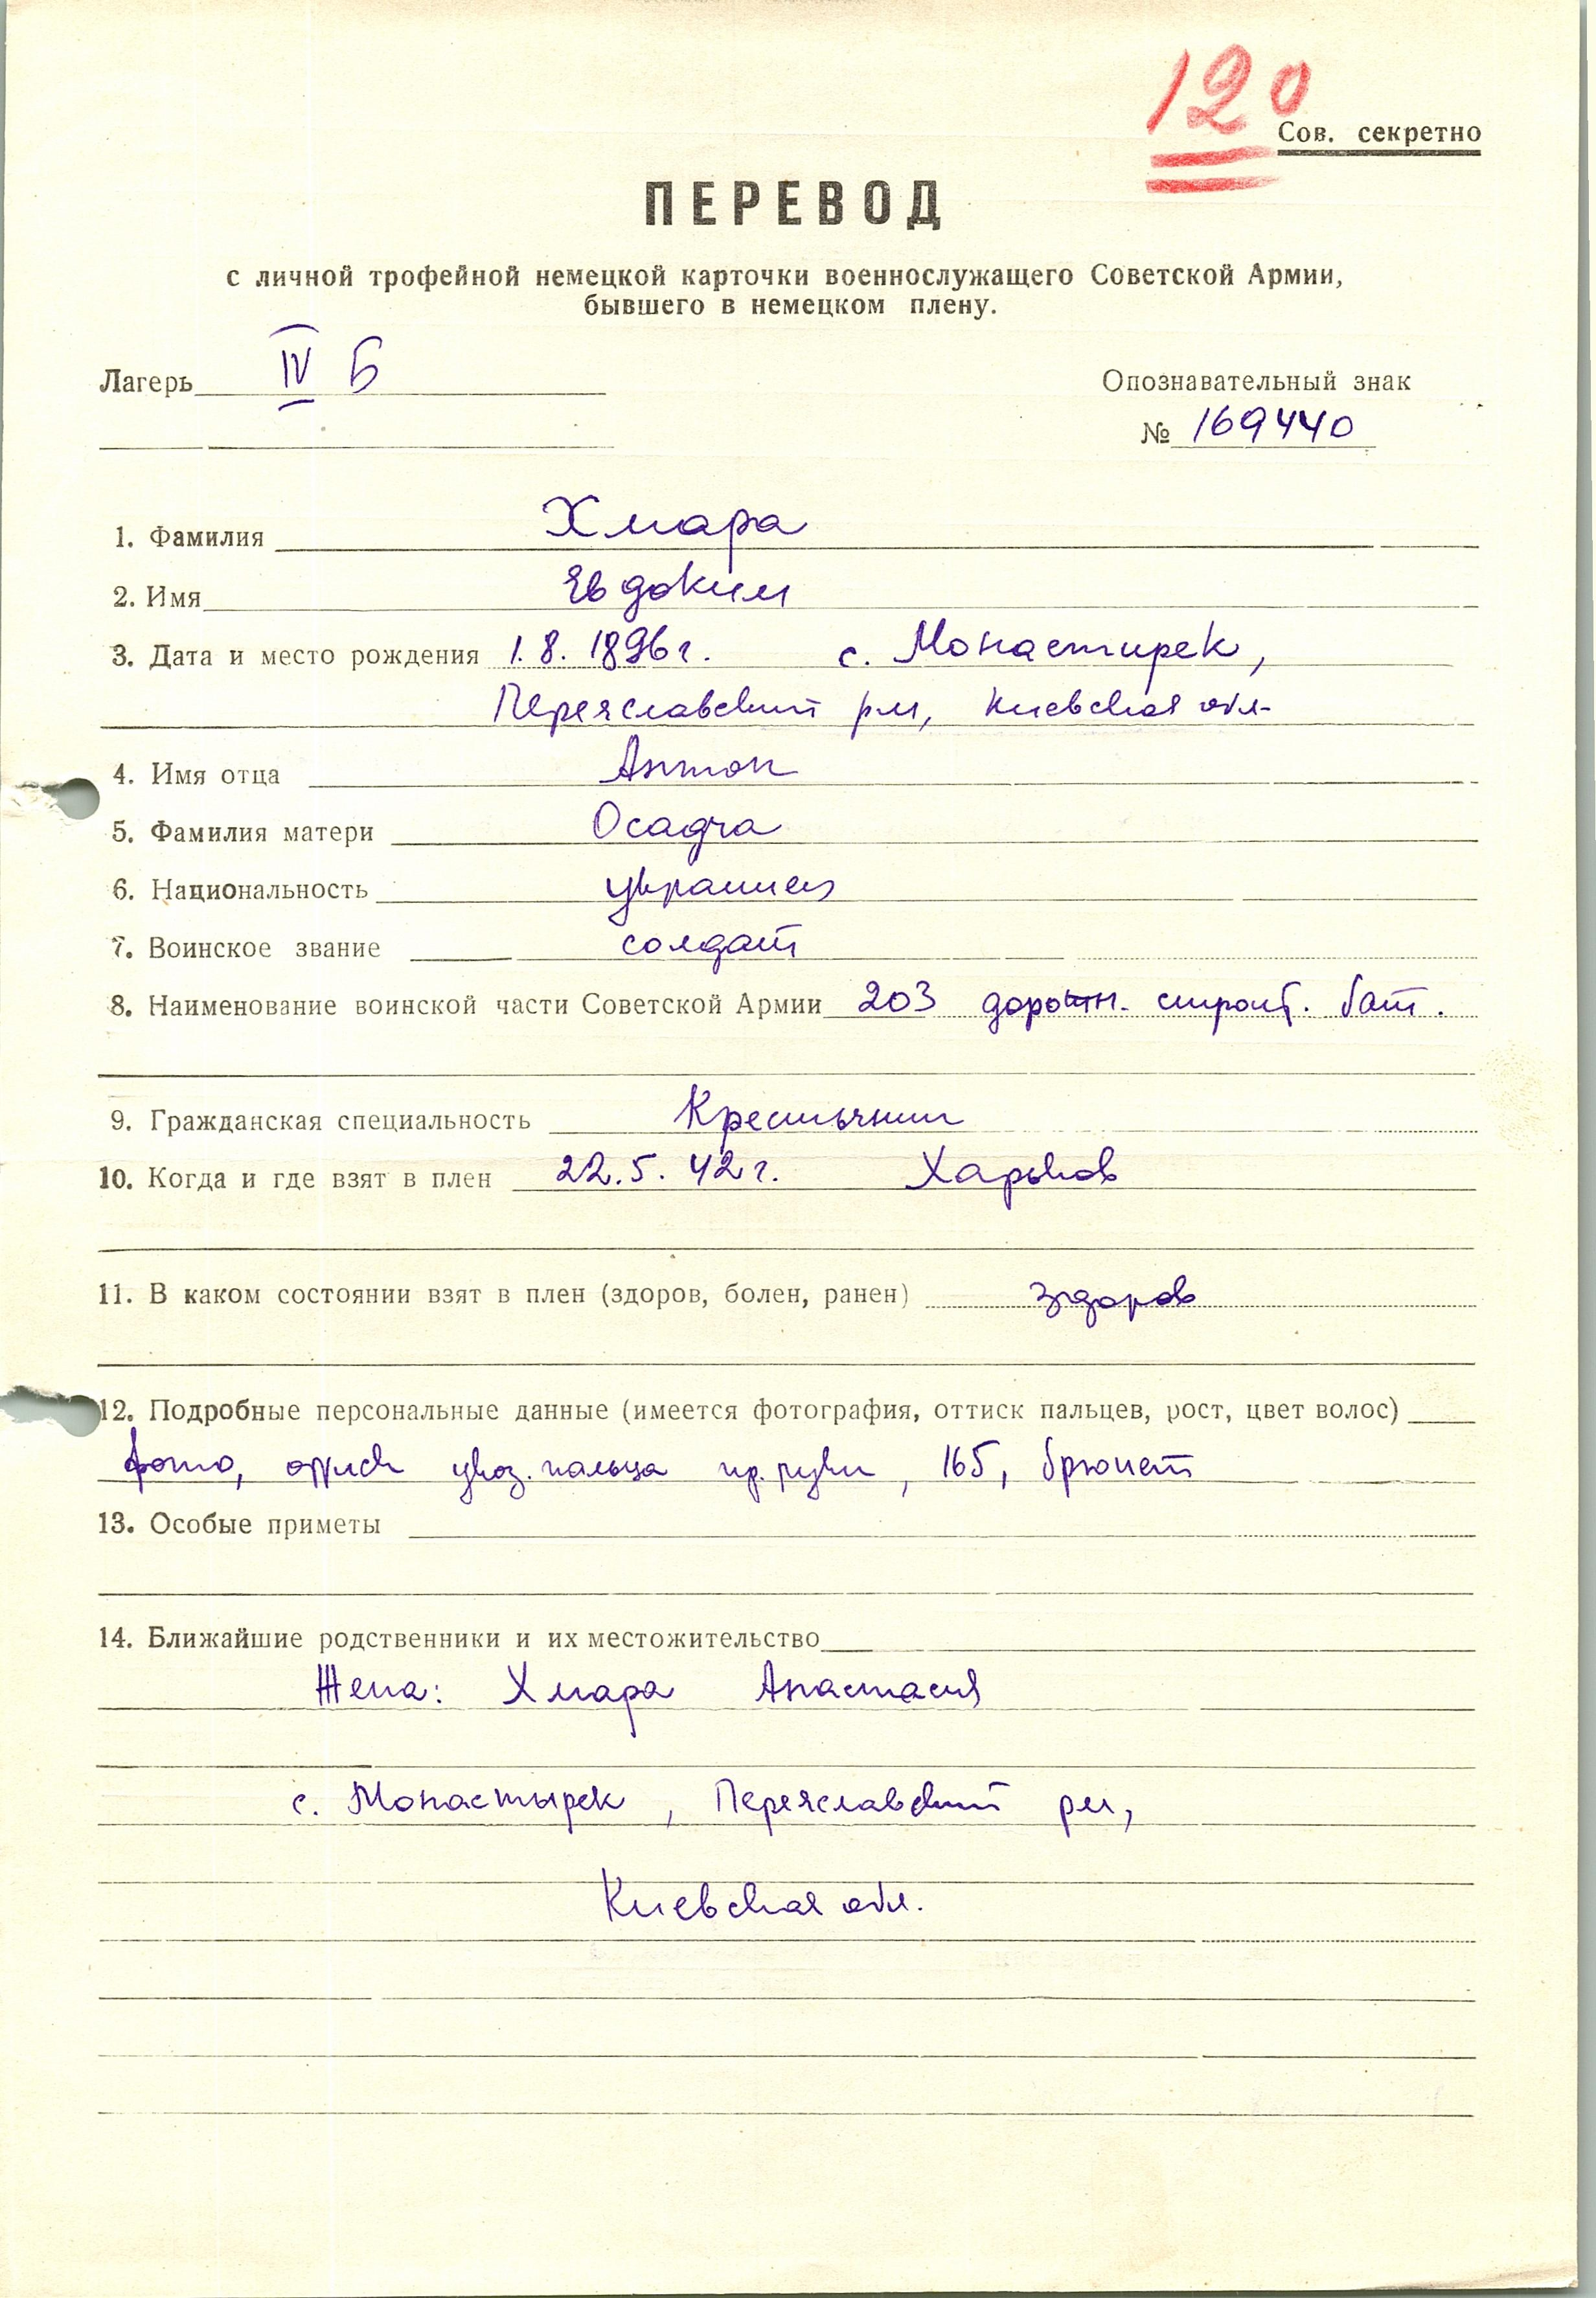 120
Сов. секретно
ПЕРЕВОД
с личной трофейной немецкой карточки военнослужащего Советской Армии,
бывшего в немецком плену.
Лагерь IV Б
Опознавательный знак
№ 169440
1. Фамилия Хмара
2. Имя Евдоким
3. Дата и место рождения 1.8.1896г. с. Монастирек,
Переяславский рн, Киевская обл.
4. Имя отца Антон
5. Фамилия матери Осадча
6. Национальность украинец
7. Воинское звание солдат
8. Наименование воинской части Советской Армии 203 дорожн. строит. бат.
9. Гражданская специальность Крестьянин
10. Когда и где взят в плен 22.5.42г. Харьков
11. В каком состоянии взят в плен (здоров, болен, ранен) здоров
12. Подробные персональные данные (имеется фотография, оттиск пальцев, рост, цвет волос)
фото, оттиск указ. пальца пр. руки, 165, брюнет
13. Особые приметы
14. Ближайшие родственники и их местожительство
Жена: Хмара Анастасия
с. Монастырек, Переяславский рн,
Киевская обл.